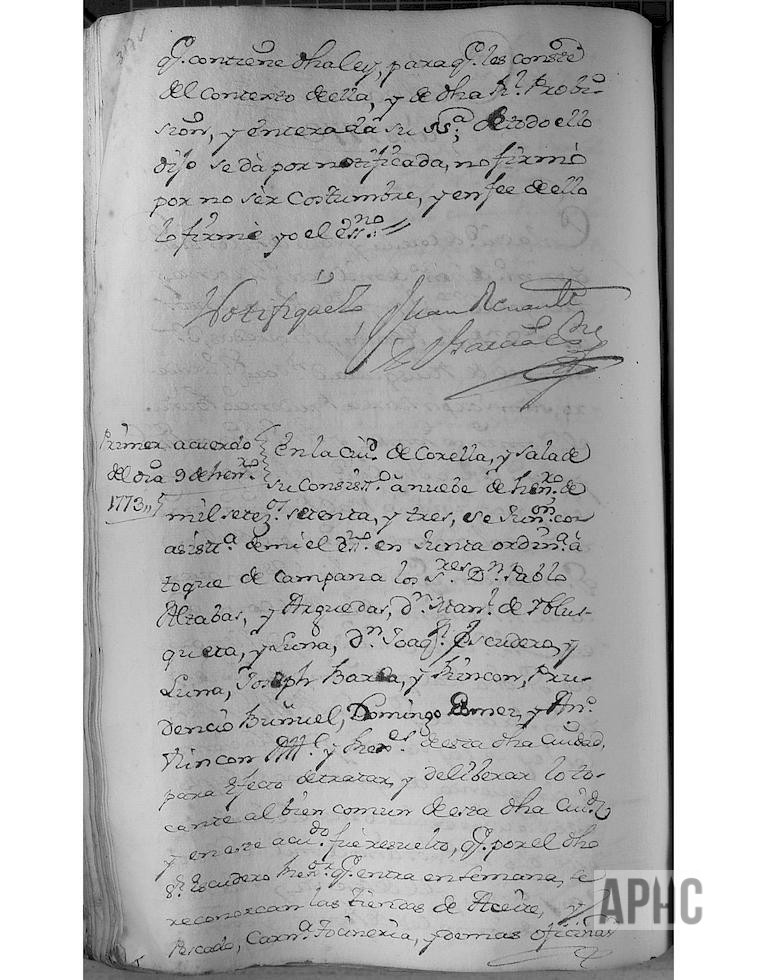 qe. contiene dha ley, para qe. les conste
del contexto de ella, y de dha Rl. Probi-
sion, y enterada su Sa. de todo ello
dijo se da por notificada, no firmó
por no sér Costumbre, y en fee de ello
lo firmé yo el essno.
Notifiquelo, Juan Renault
Garcia
Primer acuerdo
del dia 9 de henro.
1773
En la Ciud. de Corella, y Sala de
su Consistto. á nuebe de henro. de
mil setezs. setenta, y tres, se Junon. con
asistta. de mi el essno. en Junta ordina. á
toque de campana los Sres. Dn. Pablo
Alzabas, y Arguedas, dn. Manl. de
y Luna, Dn. Joaqn. Escudero, y
Luna, Joseph Barea, y Rincon, Pru-
dencio Buñuel, Domingo Gomez, y Anto.
Rincon Alls. y de esta dha Ciudad,
para efecto de tratar, y deliberar lo to-
cante al bien comun de esta dha Ciud.
y en este acdo. fue resuelto, qe. por el dho
Sr. Escudero qe. entra en semana, se
reconozcan las tiendas de Aceite, y
Pescado, Carna. Tocineria, y demas oficinas
APHC